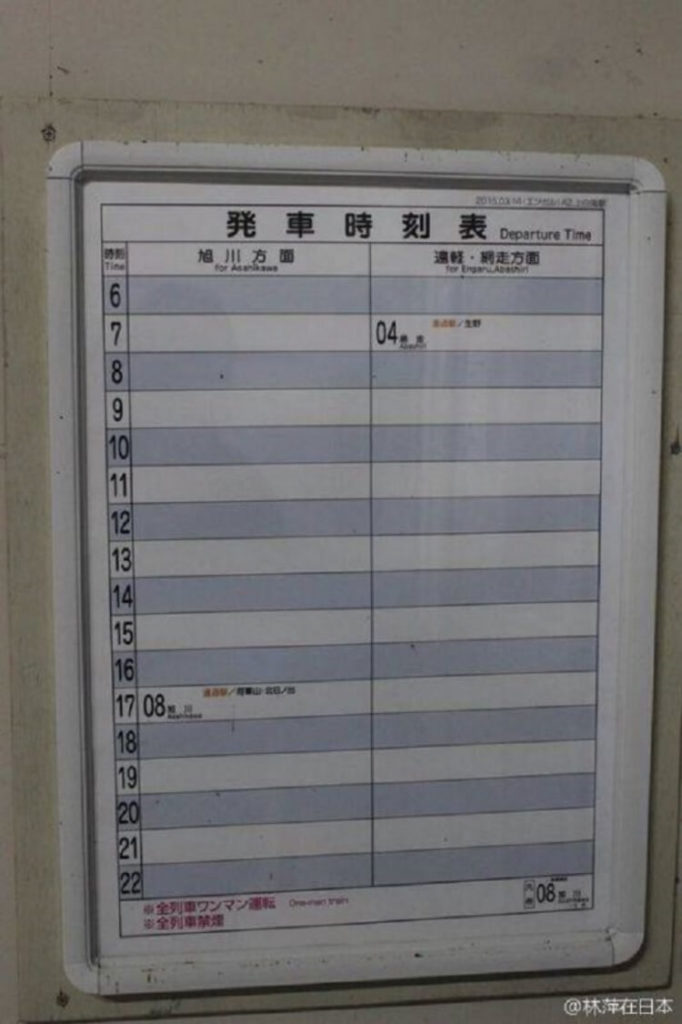 発車時刻表 Departure Time
時刻 旭川方面 遠軽・網走方面
Time for Asahikawa for Engaru,Abashiri
6
7 04 網走 通過駅/生野
Abashiri
8
9
10
11
12
13
14
15
16
17 08 旭川 通過駅/将軍山・北日ノ出
Asahikawa
18
19
20
21
22
※全列車ワンマン運転 One-man train
※全列車禁煙
08 旭川
@林萍在日本